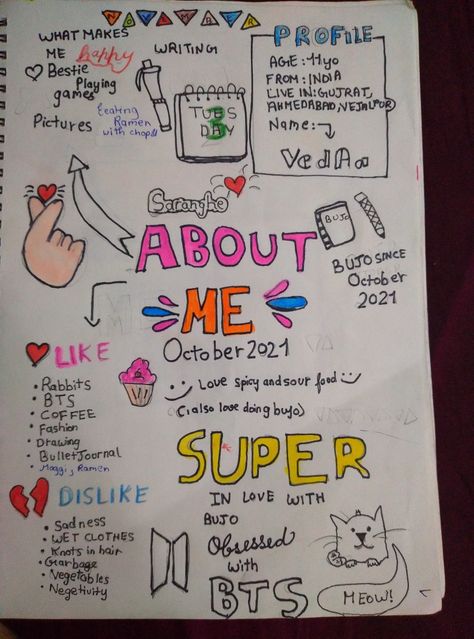 NOVEMBER
WHAT MAKES
ME happy
Bestie
Playing
games
Pictures
Eeating
Ramen
with chop
WRITING
TUES
DAY
PROFILE
AGE: 11yo
FROM: INDIA
LIVE IN: GUJRAT,
AHMEDABAD, VEJALPUR
Name:
Vedaa
Saranghe
ABOUT
ME
October 2021
BUJO
BUJO SINCE
October
2021
LIKE
• Rabbits
• BTS
• COFFEE
• Fashion
• Drawing
• Bullet Journal
• Maggi, Ramen
Love spicy and sour food
(i also lose doing bujo)
SUPER
IN LOVE WITH
BUJO
Obsessed
with
BTS
DISLIKE
• Sadness
• WET CLOTHES
• Knots in hair
• Garbage
• Vegetables
• Negetivity
MEOW!